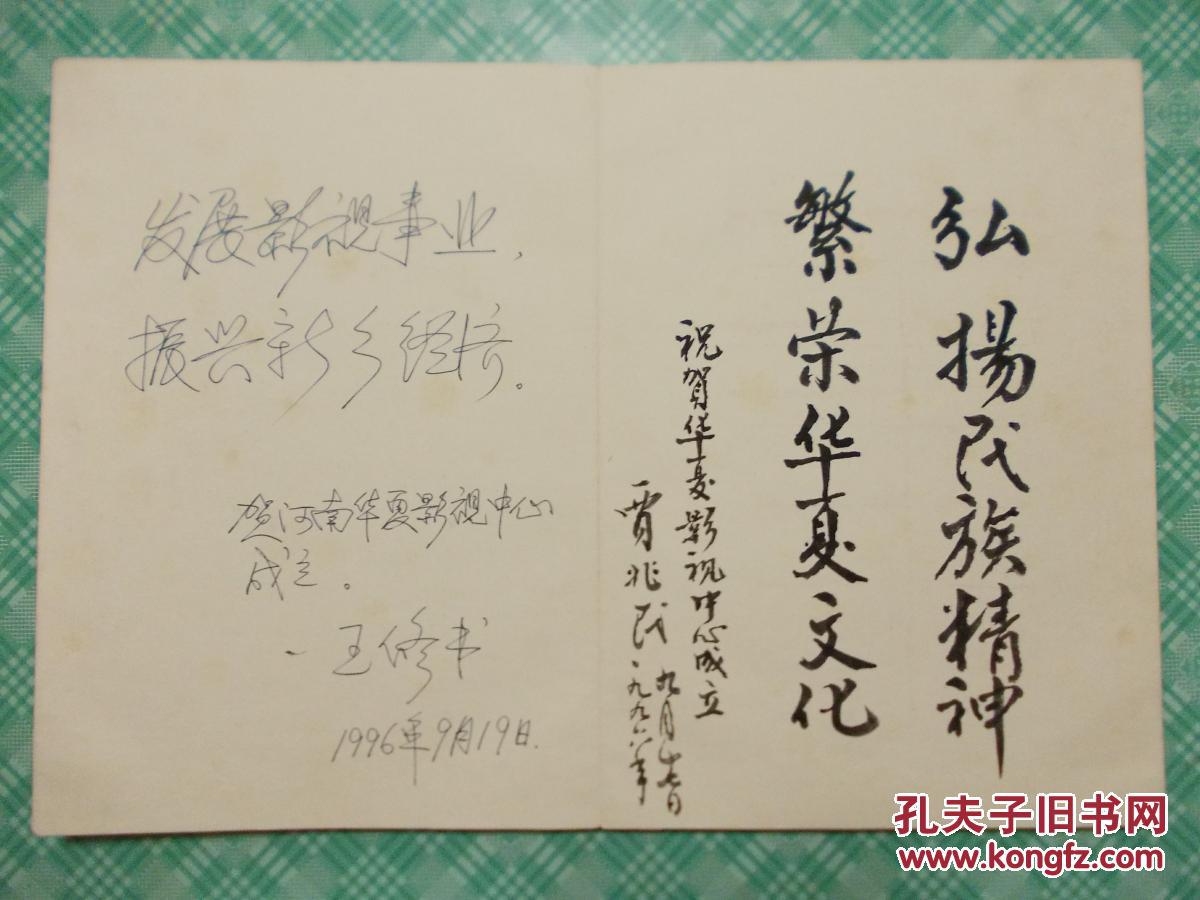 弘揚民族精神
繁荣华夏文化
祝贺华夏影視中心成立
贾兆民
一九九六年
九月十七日
发展影視事业,
振兴新乡经济。
贺河南华夏影視中心
成立。
王修书
1996年9月19日.
孔夫子旧书网
www.kongfz.com